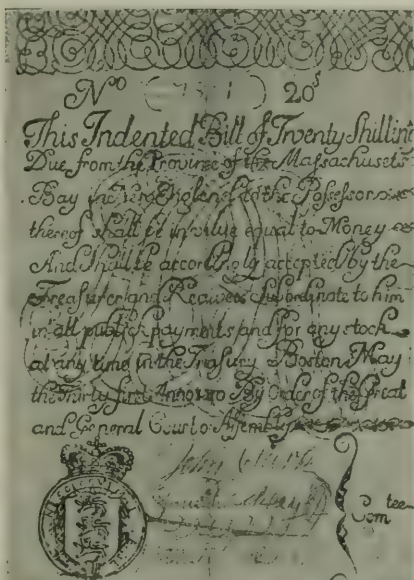 Noo 20s
This Indented Bill of Twenty Shilling
Due from the Province of the Massachusets
Bay in New England to the Possessor
thereof shall be in value equal to Money
And shall be accordingly accepted by the
Treasurer and Receivers subordinate to him
in all publick payments and for any stock
at any time in the Treasury Boston May
the Thirty first Anno By Order of the Great
and General Court or Assembly
John
Com tee